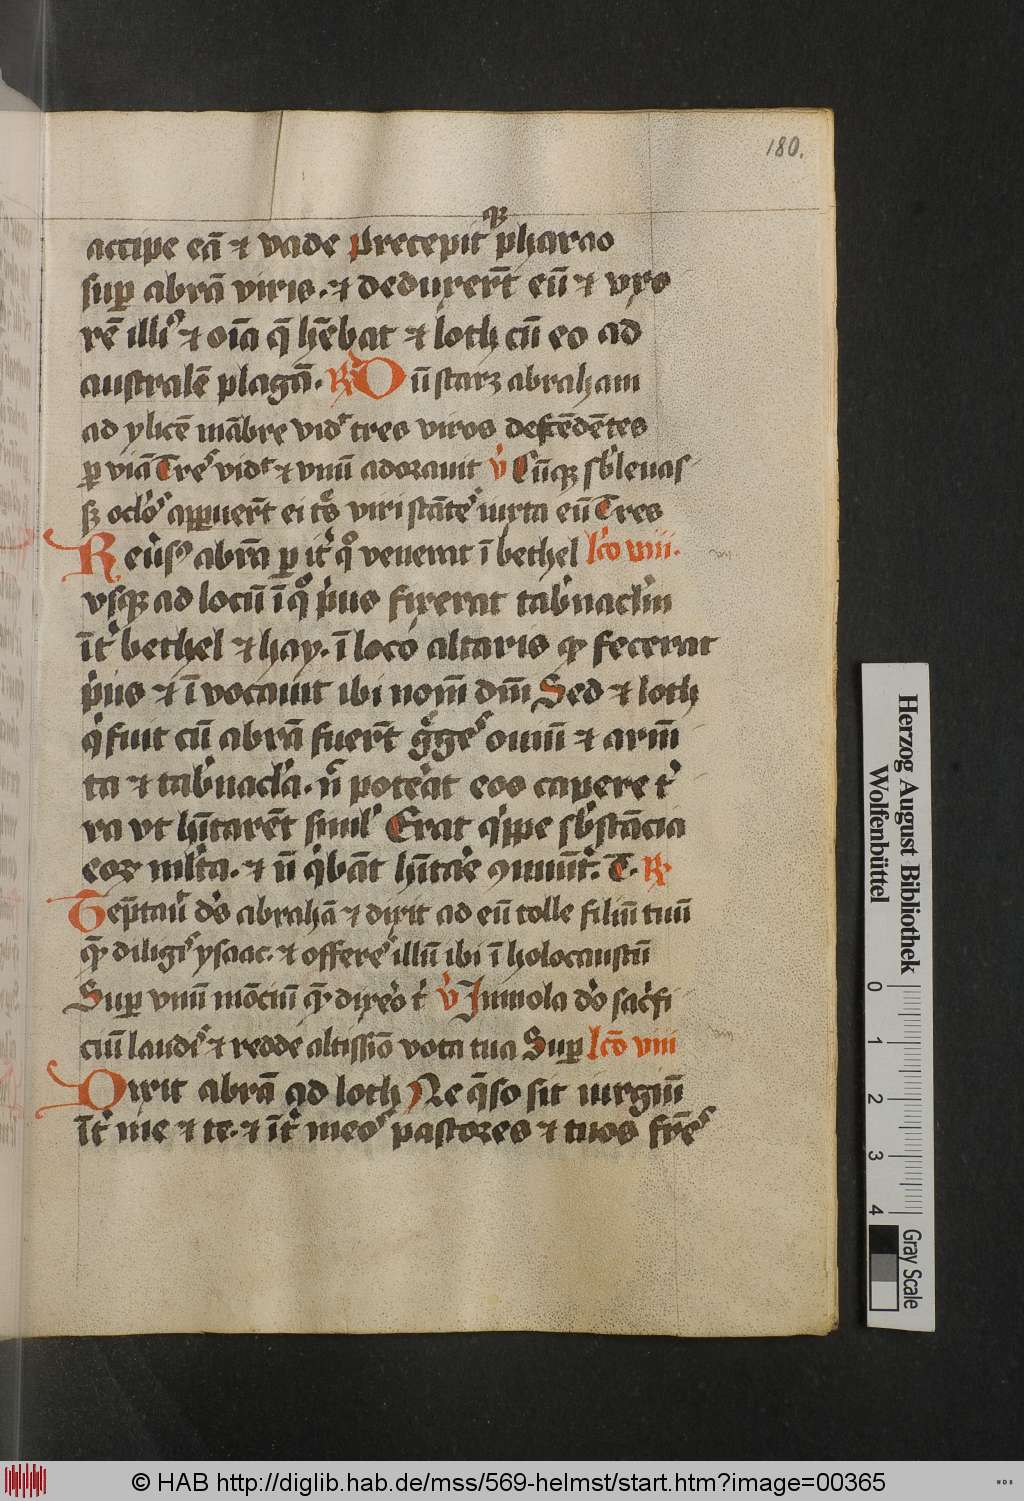 180.
accipe eā ⁊ vade precepit qꝫ pharao
suꝑ abrā viris. ⁊ deduxer̄t eū ⁊ vxo
rē illiꝰ ⁊ oīa q̄ hēbat ⁊ loth cū eo ad
australē plagā. R̸ Dū staꝫ abraham
ad ylicē mābre vidᷣ tres viros descēdētes
ꝑ viā Tres vidᷣt ⁊ vnū adorauit v̓ Cūqꝫ sb̓leuas
sꝫ oclōs apꝑuer̄t ei ts̄ viri stātes iuxta eū Tres
Reūsꝰ abrā ꝑ it̓ qͦ venerat ī bethel lc̄o viii.
vsqꝫ ad locū ī qͦ p̓us fixerat tab̓nacl̓m
īt̓ bethel ⁊ hay. ī loco altaris qᷓ fecerat
p̓us ⁊ ī vocauit ibi nom̄ dm̄ Sed ⁊ loth
q̓ fuit cū abrā fuer̄t gͤges ouiū ⁊ arm̄
ta ⁊ tab̓nacl̓a. n̄ pot̓eat eos capere t̓
ra vt hītarēt simul Erat q̓ppe sb̓stācia
eoꝝ ml̓ta. ⁊ n̄ q̓bāt hītar̓e ꝯmuīt̓. T. R̸
Tēptauit d̓s abrahā ⁊ dixit ad eū tolle filiū tuū
qᷓ diligis ysaac. ⁊ offeres illū ibi ī holocaustū
Suꝑ vnū mōciū qᷓ dixēo t̓ v̓ Immola d̓o sac̓fi
ciū laudis ⁊ redde altissīo vota tua Suꝑ lc̄o viii
Dixit abrā ad loth Ne q̄so sit iurgiū
īt̓ me ⁊ te. ⁊ īt̓ meos pastores ⁊ tuos frēs
Herzog August Bibliothek
Wolfenbüttel
0 1 2 3 4
Gray Scale
© HAB http://diglib.hab.de/mss/569-helmst/start.htm?image=00365